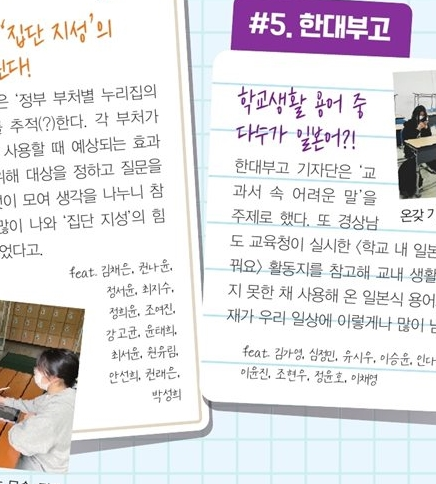 ‘집단 지성’의
된다!
은 ‘정부 부처별 누리집의
를 추적(?)한다. 각 부처가
사용할 때 예상되는 효과
위해 대상을 정하고 질문을
것이 모여 생각을 나누니 참
많이 나와 ‘집단 지성’의 힘
었다고.
feat. 김채은, 권나윤,
정서윤, 최지수,
정희윤, 조여진,
강고균, 윤태희,
최서윤, 원유림,
안선희, 권래은,
박성희
#5. 한대부고
학교생활 용어 중
다수가 일본어?!
한대부고 기자단은 ‘교
과서 속 어려운 말’을
주제로 했다. 또 경상남
도 교육청이 실시한 〈학교 내 일본
꿔요〉 활동지를 참고해 교내 생활
지 못한 채 사용해 온 일본식 용어
재가 우리 일상에 이렇게나 많이 남
feat. 김가영, 심정민, 유시우, 이승윤, 인다
이윤진, 조현우, 정윤호, 이채영
온갖 기